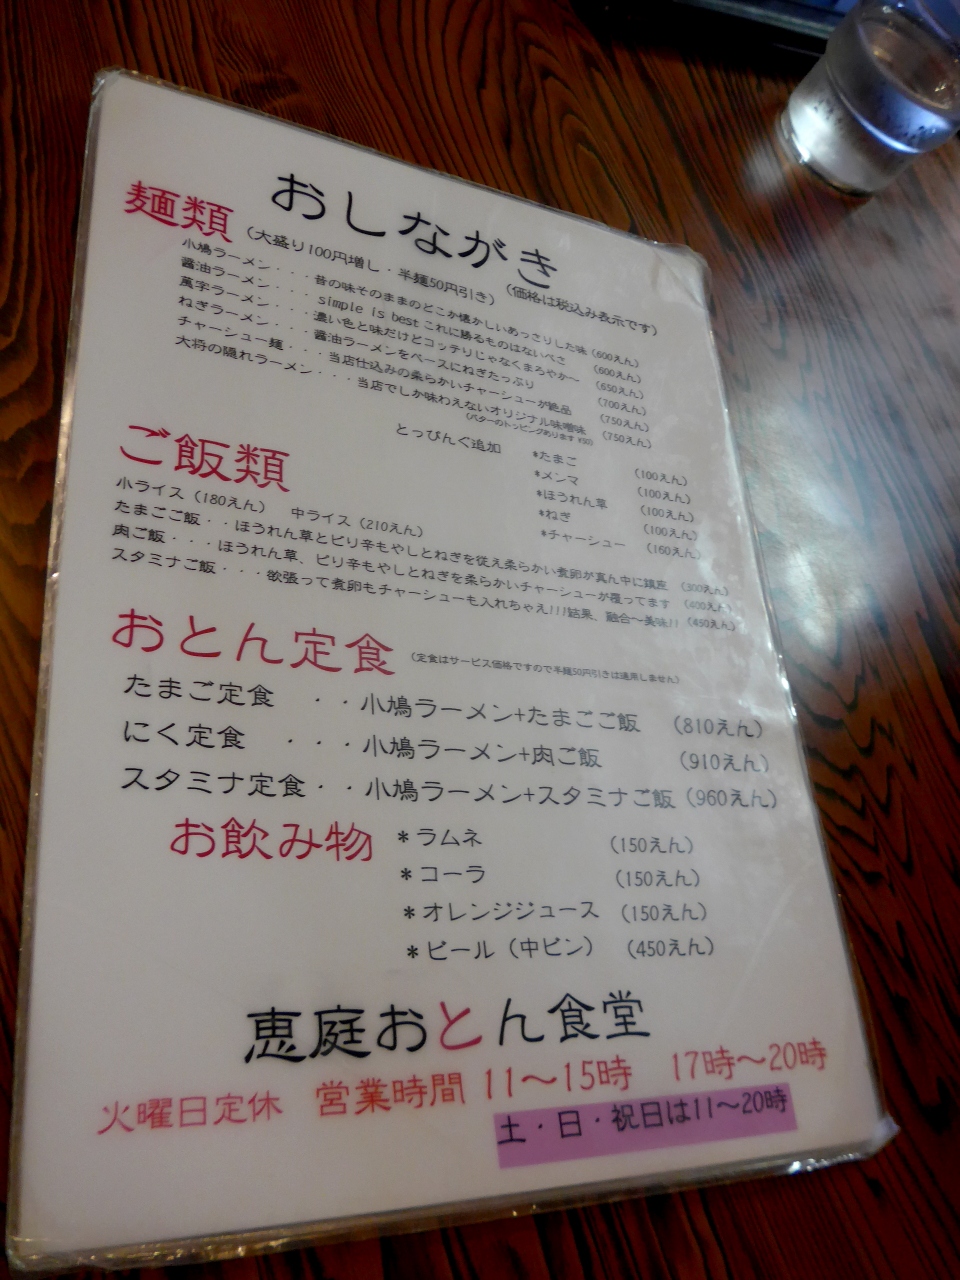 おしながき
(価格は税込み表示です)
麺類 (大盛り100円増し・半麺50円引き)
小鳩ラーメン・・・昔の味そのままのどこか懐かしいあっさりした味 (600えん)
醤油ラーメン・・・simple is best これに勝るものはないべさ (600えん)
萬字ラーメン・・・濃い色と味だけとコッテリじゃなくまろやか〜 (650えん)
ねぎラーメン・・・醤油ラーメンをベースにねぎたっぷり (700えん)
チャーシュー麺・・・当店仕込みの柔らかいチャーシューが絶品 (750えん)
大将の隠れラーメン・・・当店でしか味わえないオリジナル味噌味 (750えん)
(バターのトッピングあります ¥50)
とっぴんぐ追加 *たまご (100えん)
*メンマ (100えん)
*ほうれん草 (100えん)
*ねぎ (100えん)
*チャーシュー (160えん)
ご飯類
小ライス (180えん) 中ライス (210えん)
たまごご飯・・ほうれん草とピり辛もやしとねぎを従え柔らかい煮卵が真ん中に鎮座 (300えん)
肉ご飯・・・ほうれん草、ピり辛もやしとねぎを柔らかいチャーシューが覆ってます (400えん)
スタミナご飯・・・欲張って煮卵もチャーシューも入れちゃえ!!!結果、融合〜美味!! (450えん)
おとん定食 (定食はサービス価格ですので半麺50円引きは適用しません)
たまご定食 ・・小鳩ラーメン+たまごご飯 (810えん)
にく定食 ・・・小鳩ラーメン+肉ご飯 (910えん)
スタミナ定食・・小鳩ラーメン+スタミナご飯 (960えん)
お飲み物 *ラムネ (150えん)
*コーラ (150えん)
*オレンジジュース (150えん)
*ビール (中ビン) (450えん)
恵庭おとん食堂
火曜日定休 営業時間 11〜15時 17時〜20時
土・日・祝日は11〜20時